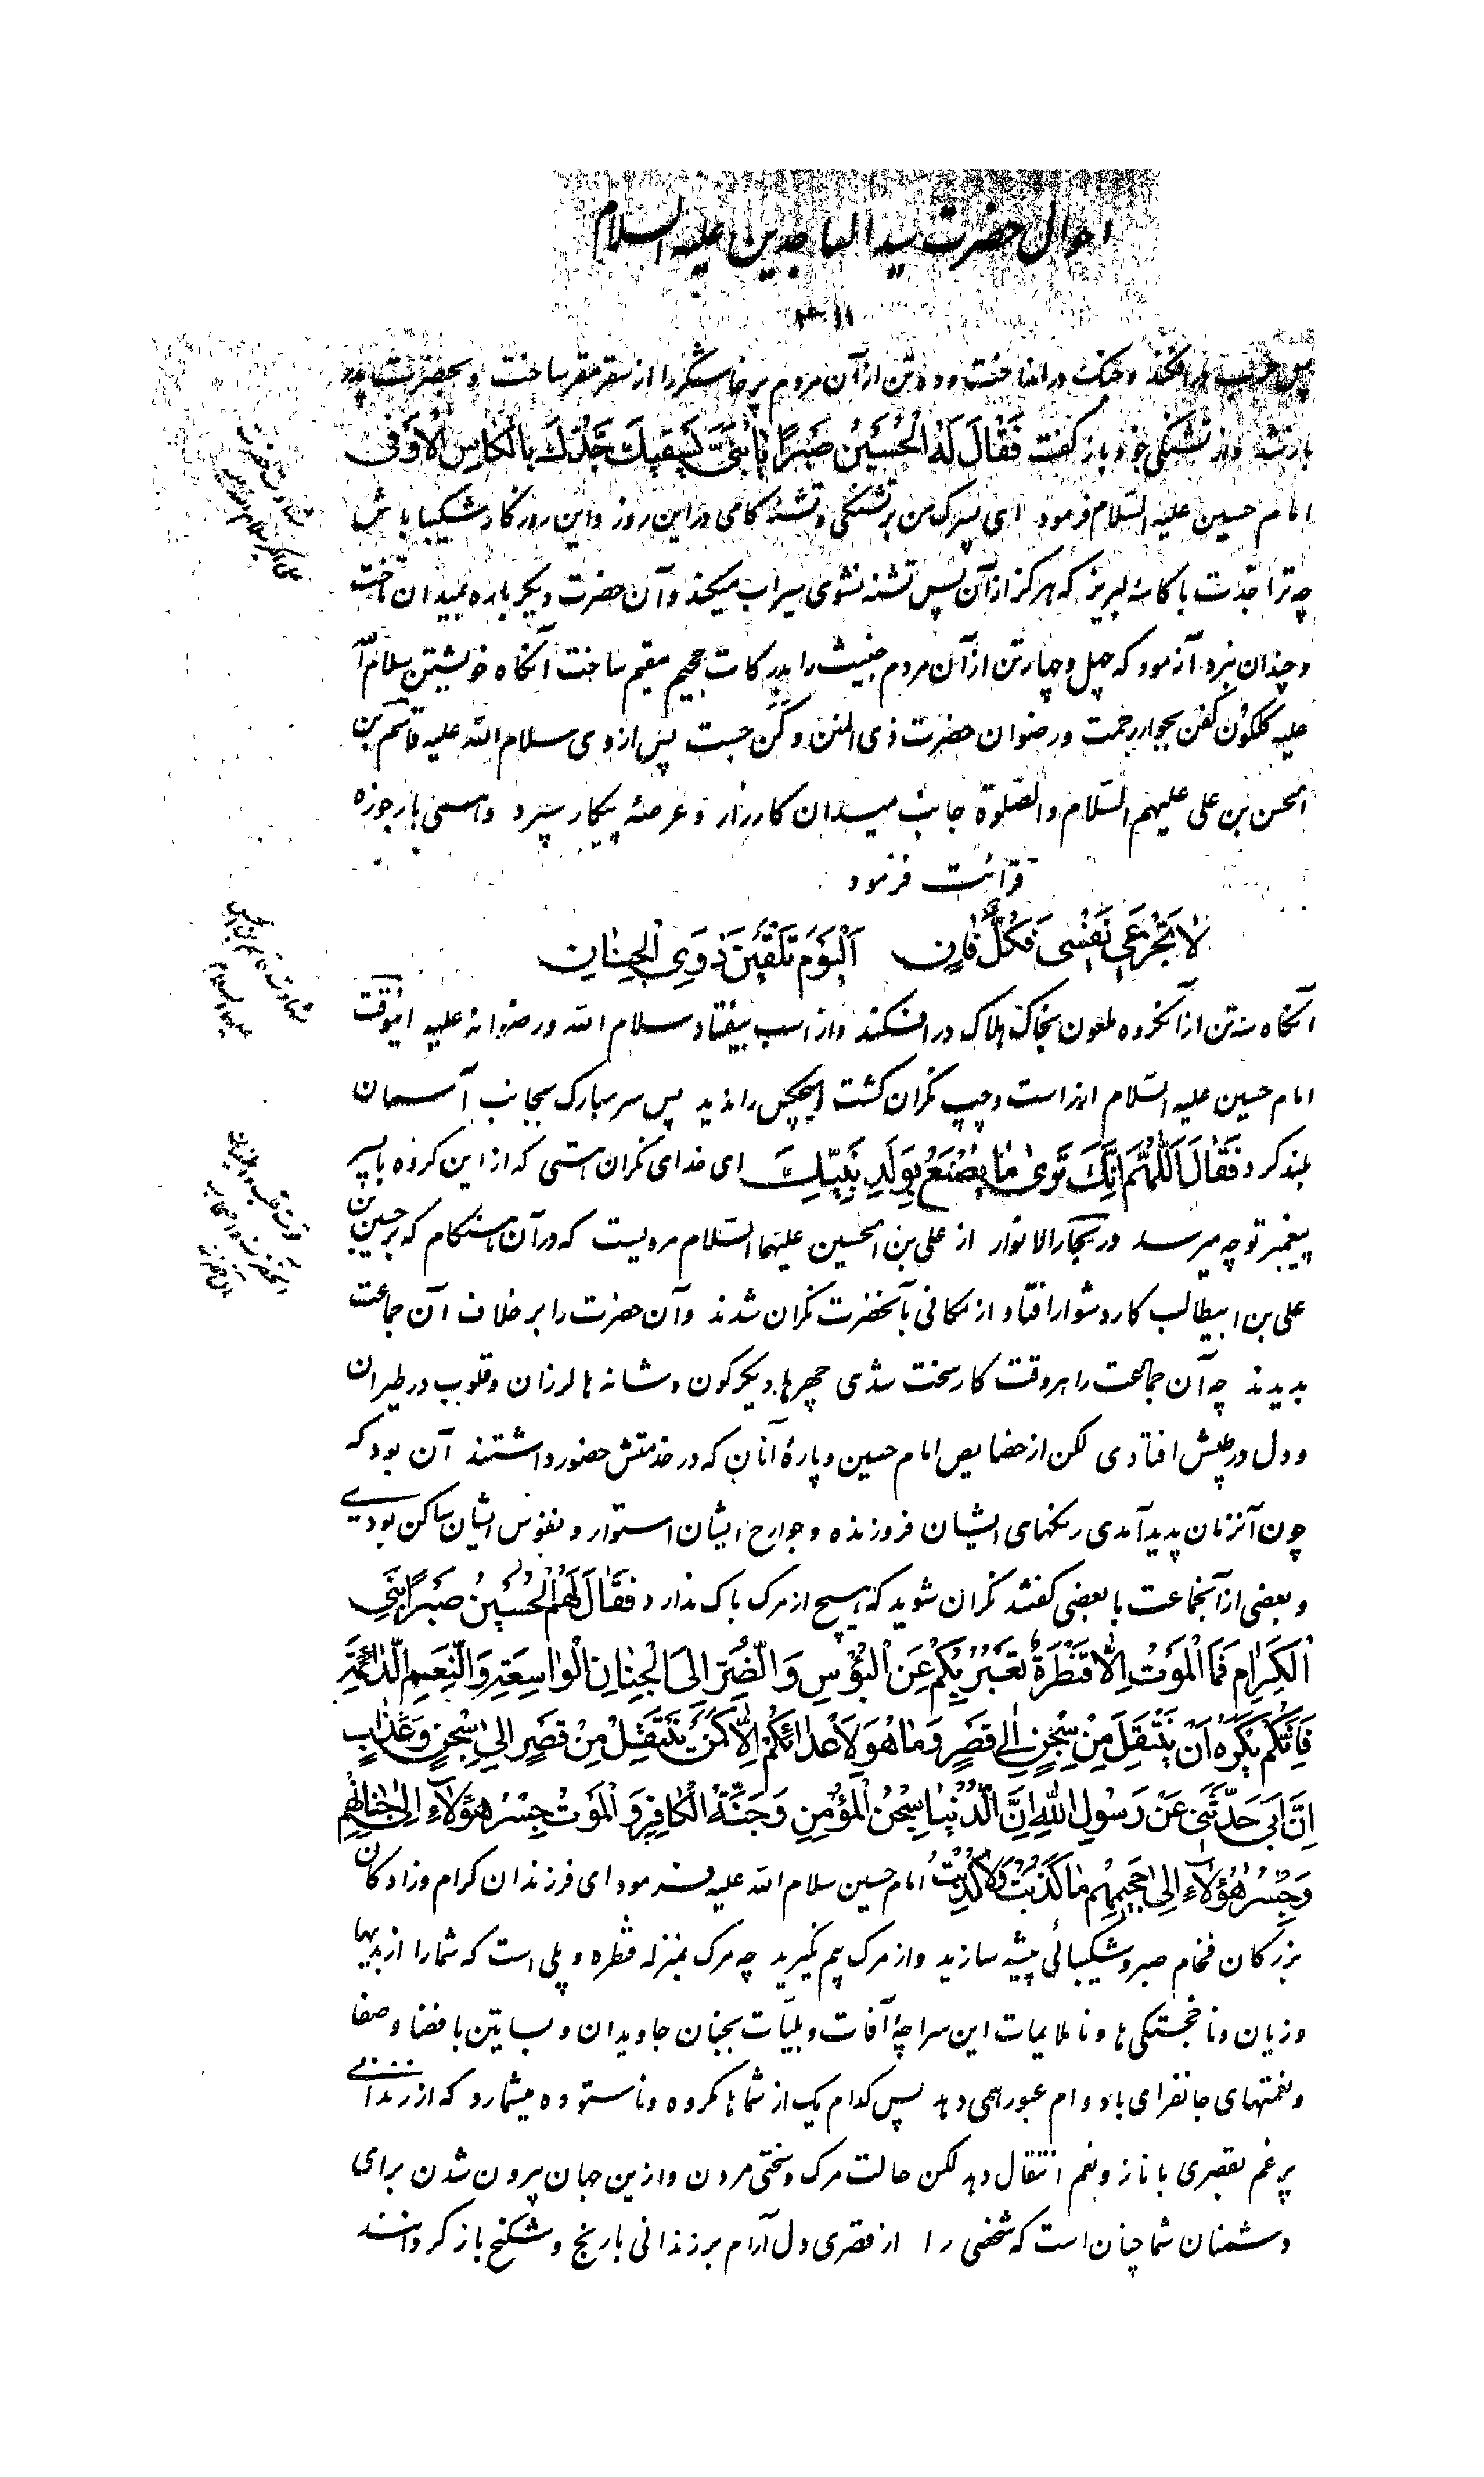 احوال حضرت سید الساجدین علیه السلام
پس حرب درافکند و جنگ در انداخت و دو تن از آن مردم پرخاشگر را از سقر مقر ساخت و بحضرت پدر
باز شد و از تشنگی خود باز گفت فَقَالَ لَهُ الْحُسَيْنُ صَبْرًا يَا بُنَيَّ يَسْقِيكَ جَدُّكَ بِالْكَاسِ الْأَوْفى
امام حسین علیه السّلام فرمود ای پسرک من بر تشنکی و تشنه کامی در این روز و این روزکار شکیبا باش
چه ترا جدّت با کاسهٔ لبریز که هرکز از آن پس تشنه نشوی سیراب میکند و آن حضرت دیکر باره بمیدان تاخت
و چندان نبرد آزمود که چهل و چهار تن از آن مردم خبیث را بدرکات جحیم مقیم ساخت آنکاه خویشتن سلام اللّه
علیه کلکون کفن بجوار رحمت و رضوان حضرت ذی المنن و کن جست پس از وی سلام اللّه علیه قاسم بن
الحسن بن علی علیهم السّلام والصّلوة جانب میدان کارزار و عرصهٔ پیکار سپرد و این ارجوزه
قرائت فرمود
لَا تَجْزَعِي نَفْسِي فَكُلٌّ فَانٍ اَلْيَوْمَ تَلْقَيْنَ ذَوِي الْجِنَانِ
آنکاه سه تن از آنکروه ملعون بخاک هلاک در افکند و از اسب بیفتاد سلام اللّه و رضوانه علیه اینوقت
امام حسین علیه السّلام از راست و چپ نکران کشت و هیچکس را ندید پس سر مبارک بجانب آسمان
بلند کرد فَقَالَ اَللّٰهُمَّ اِنَّكَ تَرىٰ مَا يُصْنَعُ بِوَلَدِ نَبِيِّكَ ای خدای نکران استی که از این کروه با پسر
پیغمبر تو چه میرسد در بحار الانوار از علی بن الحسین علیهما السّلام مرویست که در آن هنکام که بر حسین بن
علی بن ابیطالب کار دشوار افتاد از مکانی بآنحضرت نکران شدند و آن حضرت را بر خلاف آن جماعت
بدیدند چه آن جماعت را هر وقت کار سخت شدی چهرها دیکرکون و شانه ها لرزان و قلوب در طیران
و دل در طپش افتادی لکن از خصایص امام حسین و پارهٔ آنان که در خدمتش حضور داشتند آن بود که
چون آنزمان پدید آمدی رنکهای ایشان فروزنده و جوارح ایشان استوار و نفوس ایشان ساکن بودی
و بعضی از آنجماعت با بعضی کفتند نکران شوید که هیچ از مرک باک ندارد فَقَالَ لَهُمُ الْحُسَيْنُ صَبْرًا بَنِي
الْكِرَامِ فَمَا الْمَوْتُ اِلَّا قَنْطَرَةٌ تَعْبُرُ بِكُمْ عَنِ الْبُؤْسِ وَالضُّرِّ اِلَى الْجِنَانِ الْوَاسِعَةِ وَالنَّعِيمِ الدَّائِمَةِ
فَاَيُّكُمْ يَكْرَهُ اَنْ يَنْتَقِلَ مِنْ سِجْنٍ اِلىٰ قَصْرٍ وَمَا هُوَ لِاَعْدَائِكُمْ اِلَّا كَمَنْ يَنْتَقِلُ مِنْ قَصْرٍ اِلىٰ سِجْنٍ وَعَذَابٍ
اِنَّ اَبِي حَدَّثَنِي عَنْ رَسُولِ اللّٰهِ اِنَّ الدُّنْيَا سِجْنُ الْمُؤْمِنِ وَجَنَّةُ الْكَافِرِ وَالْمَوْتُ جِسْرُ هٰؤُلَاءِ اِلىٰ جِنَانِهِمْ
وَجِسْرُ هٰؤُلَاءِ اِلىٰ جَحِيمِهِمْ مَا كَذَبْتُ وَلَا كُذِبْتُ امام حسین سلام اللّه علیه فرمود ای فرزندان کرام و زادکان
بزرکان فخام صبر و شکیبائی پیشه سازید و از مرک بیم نکیرید چه مرک بمنزله قنطره و پلی است که شما را از بدیها
و زیان و ناخجستکی ها و ناملایمات این سراچهٔ آفات و بلیّات بجنان جاویدان و بساتین با فضا و صفا
و نعمتهای جانفزای با دوام عبور همی دهد پس کدام یک از شماها مکروه و ناستوده میشمارد که از زندانی
پر غم بقصری با ناز و نعم انتقال دهد لکن حالت مرک و سختی مردن و ازین جهان بیرون شدن برای
دشمنان شما چنان است که شخصی را از قصری دل آرام بر زندانی با رنج و شکنج باز کردانند